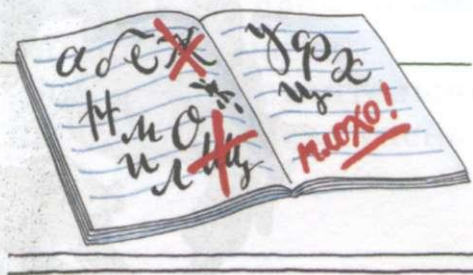 а б е ж
н м о
и л щ
у ф х
ц
плохо!